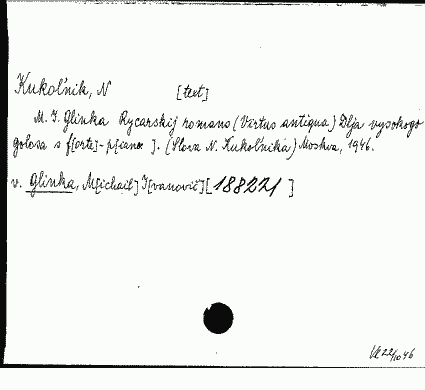 Kukol'nik, N [text]
M. I. Glinka Rycarskij romans (Virtus antiqua) Dlja vysokogo
golosa s f[orte]-p[iano]. (Slova N. Kukol'nika) Moskva, 1946.
v. Glinka, M[ichail] I[vanovič] [188221]
Vk 22/10 46